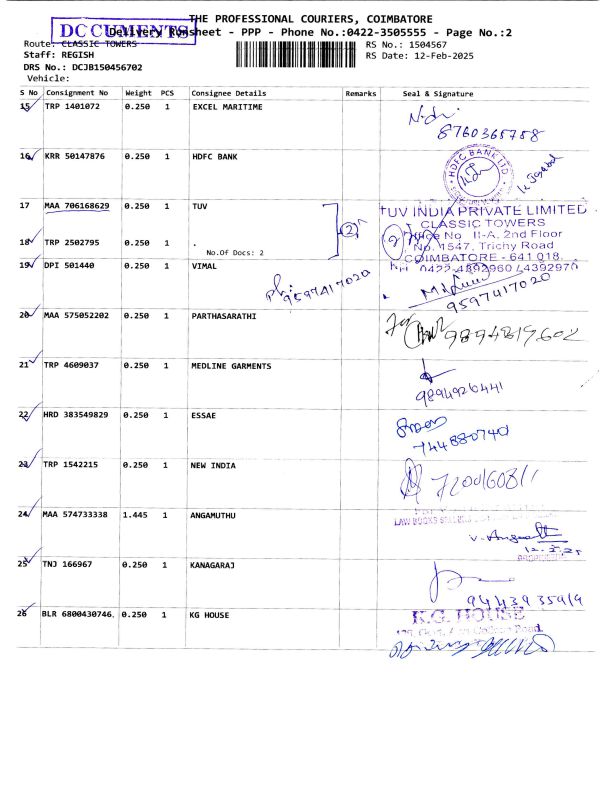 THE PROFESSIONAL COURIERS, COIMBATORE
DOCUMENTS
Delivery Runsheet - PPP - Phone No.:0422-3505555 - Page No.:2
Route: CLASSIC TOWERS
RS No.: 1504567
Staff: REGISH
RS Date: 12-Feb-2025
DRS No.: DCJB150456702
Vehicle:
S No Consignment No Weight PCS Consignee Details Remarks Seal & Signature
15 TRP 1401072 0.250 1 EXCEL MARITIME
8760365758
16 KRR 50147876 0.250 1 HDFC BANK
HDFC BANK LTD
17 MAA 706168629 0.250 1 TUV
2
TUV INDIA PRIVATE LIMITED
CLASSIC TOWERS
Office No. II-A, 2nd Floor
No. 1547, Trichy Road
COIMBATORE - 641 018.
Ph 0422-4892960 / 4392970
18 TRP 2502795 0.250 1 .
No.Of Docs: 2
19 DPI 501440 0.250 1 VIMAL
Ph: 9597417020
9597417020
20 MAA 575052202 0.250 1 PARTHASARATHI
9894819602
21 TRP 4609037 0.250 1 MEDLINE GARMENTS
9894926441
22 HRD 383549829 0.250 1 ESSAE
744880740
23 TRP 1542215 0.250 1 NEW INDIA
24 MAA 574733338 1.445 1 ANGAMUTHU
LAW BOOKS
12.2.25
25 TNJ 166967 0.250 1 KANAGARAJ
9443935919
26 BLR 6800430746, 0.250 1 KG HOUSE
K.G. HOUSE